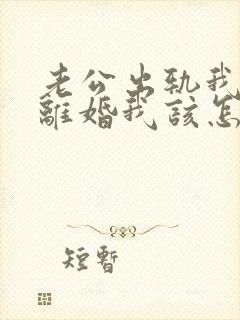 老公出轨我
離婚我該怎
短暫